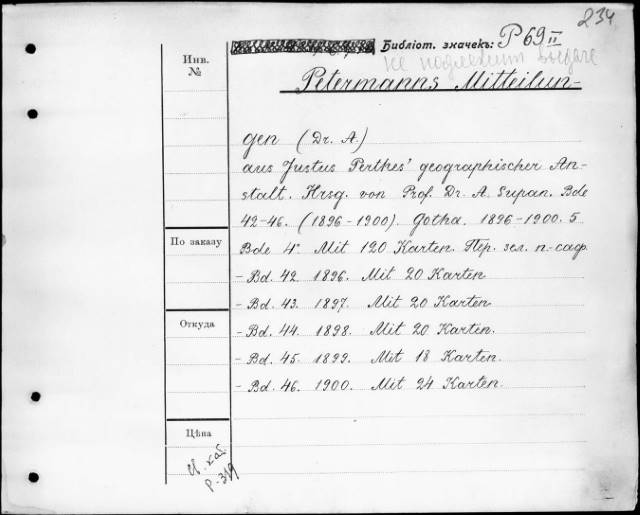 234
Библіот. значекъ: P 69 II
не подлежит выдаче
Инв.
№
Petermanns Mitteilun-
gen (Dr. A.)
aus Justus Perthes' geographischer An-
stalt. Hrsg. von Prof. Dr. A. Supan. Bde
42-46. (1896-1900). Gotha. 1896-1900. 5
По заказу
Bde 4°. Mit 120 Karten. Пер. зел. п-саф.
- Bd. 42. 1896. Mit 20 Karten
- Bd. 43. 1897. Mit 20 Karten
Откуда
- Bd. 44. 1898. Mit 20 Karten.
- Bd. 45. 1899. Mit 18 Karten.
- Bd. 46. 1900. Mit 24 Karten.
Цѣна
каб.
P. 319